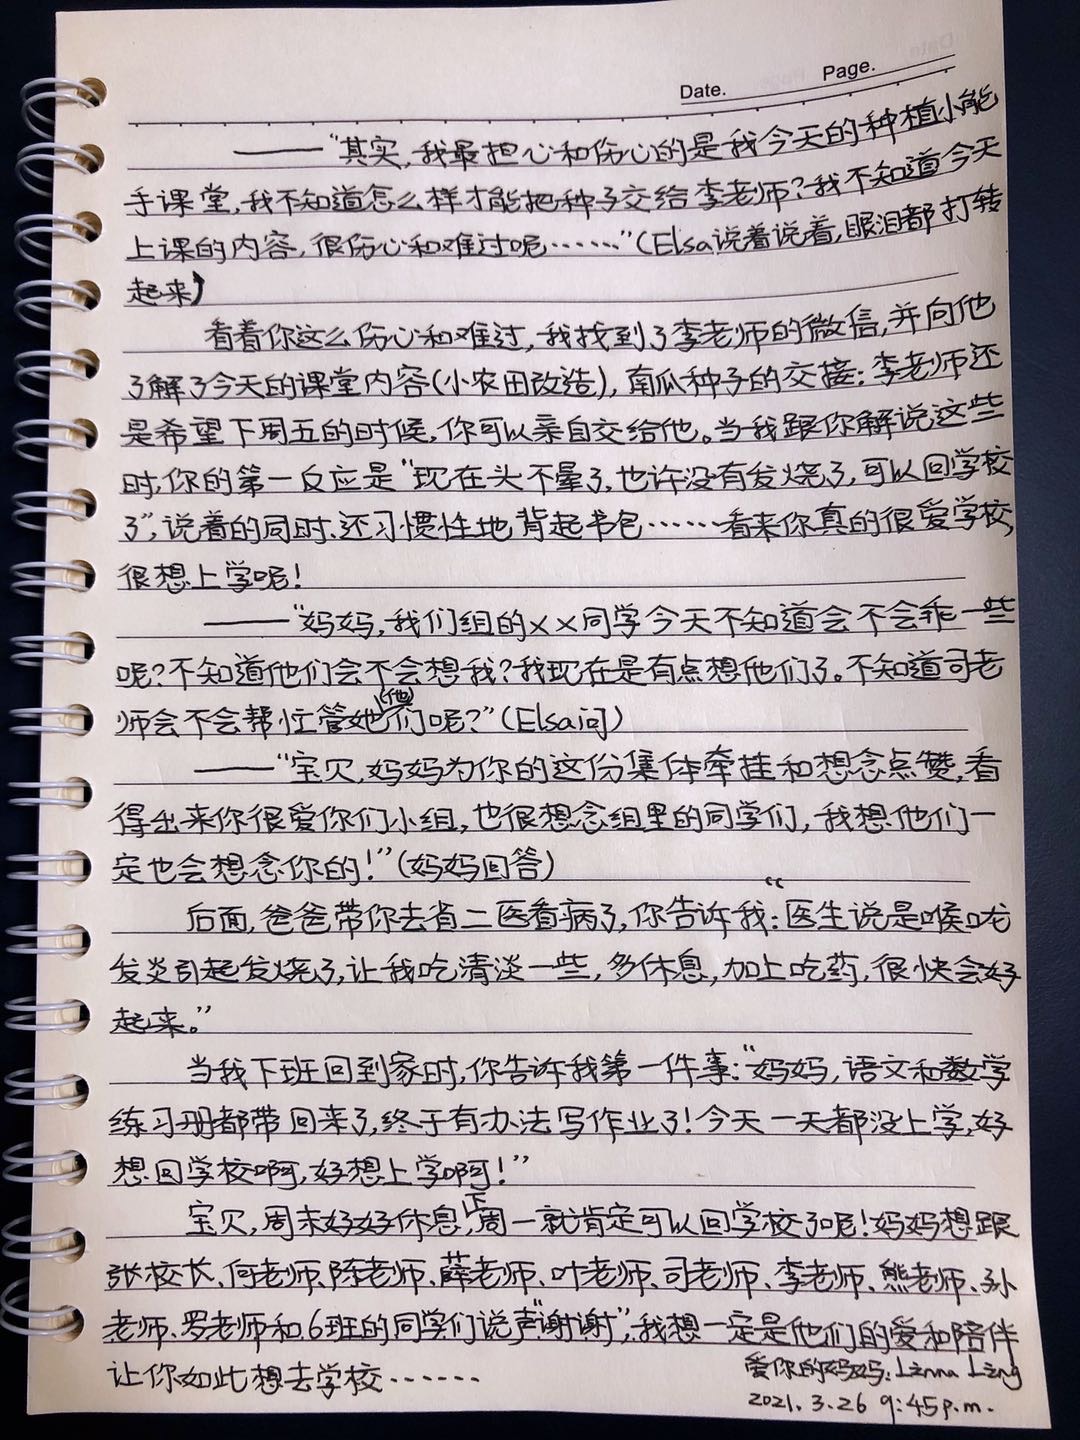 Date. Page.
——“其实,我最担心和伤心的是我今天的种植小能
手课堂,我不知道怎么样才能把种子交给李老师?我不知道今天
上课的内容,很伤心和难过呢……”(Elsa说着说着,眼泪都打转
起来)
看着你这么伤心和难过,我找到了李老师的微信,并向他
了解了今天的课堂内容(小农田改造),南瓜种子的交接;李老师还
是希望下周五的时候,你可以亲自交给他。当我跟你解说这些
时,你的第一反应是“现在头不晕了,也许没有发烧了,可以回学校
了”,说着的同时,还习惯性地背起书包……看来你真的很爱学校,
很想上学呢!
——“妈妈,我们组的××同学今天不知道会不会乖一些
呢?不知道他们会不会想我?我现在是有点想他们了。不知道司老
师会不会帮忙管她(他)们呢?”(Elsa问)
——“宝贝,妈妈为你的这份集体牵挂和想念点赞,看
得出来你很爱你们小组,也很想念组里的同学们,我想他们一
定也会想念你的!”(妈妈回答)
后面,爸爸带你去省二医看病了,你告诉我:“医生说是喉咙
发炎引起发烧了,让我吃清淡一些,多休息,加上吃药,很快会好
起来。”
当我下班回到家时,你告诉我第一件事:“妈妈,语文和数学
练习册都带回来了,终于有办法写作业了!今天一天都没上学,好
想回学校啊,好想上学啊!”
宝贝,周末好好休息,下周一就肯定可以回学校了呢!妈妈想跟
张校长、何老师、陈老师、薛老师、叶老师、司老师、李老师、熊老师、孙
老师、罗老师和.6班的同学们说声“谢谢”,我想一定是他们的爱和陪伴
让你如此想去学校……
爱你的妈妈:Linna Ling
2021.3.26 9:45p.m.